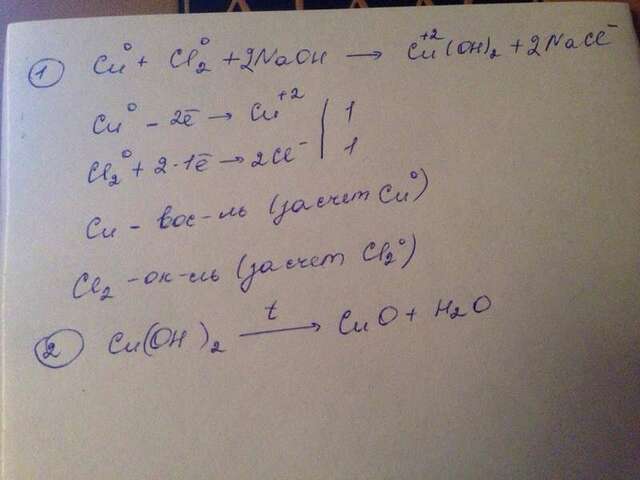 1 Cu⁰ + Cl₂⁰ + 2NaOH → Cu⁺²(OH)₂ + 2NaCl⁻
Cu⁰ – 2ē → Cu⁺² | 1
Cl₂⁰ + 2·1ē → 2Cl⁻ | 1
Cu – вос-ль (за счет Cu⁰)
Cl₂ – ок-ль (за счет Cl₂⁰)
2 Cu(OH)₂ t→ CuO + H₂O